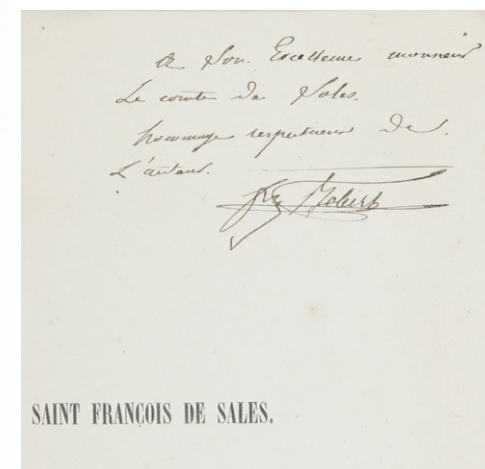 a Son. Excellence monsieur
Le comte de Sales.
hommage respectueux de
L'auteur.
Robert
SAINT FRANÇOIS DE SALES.